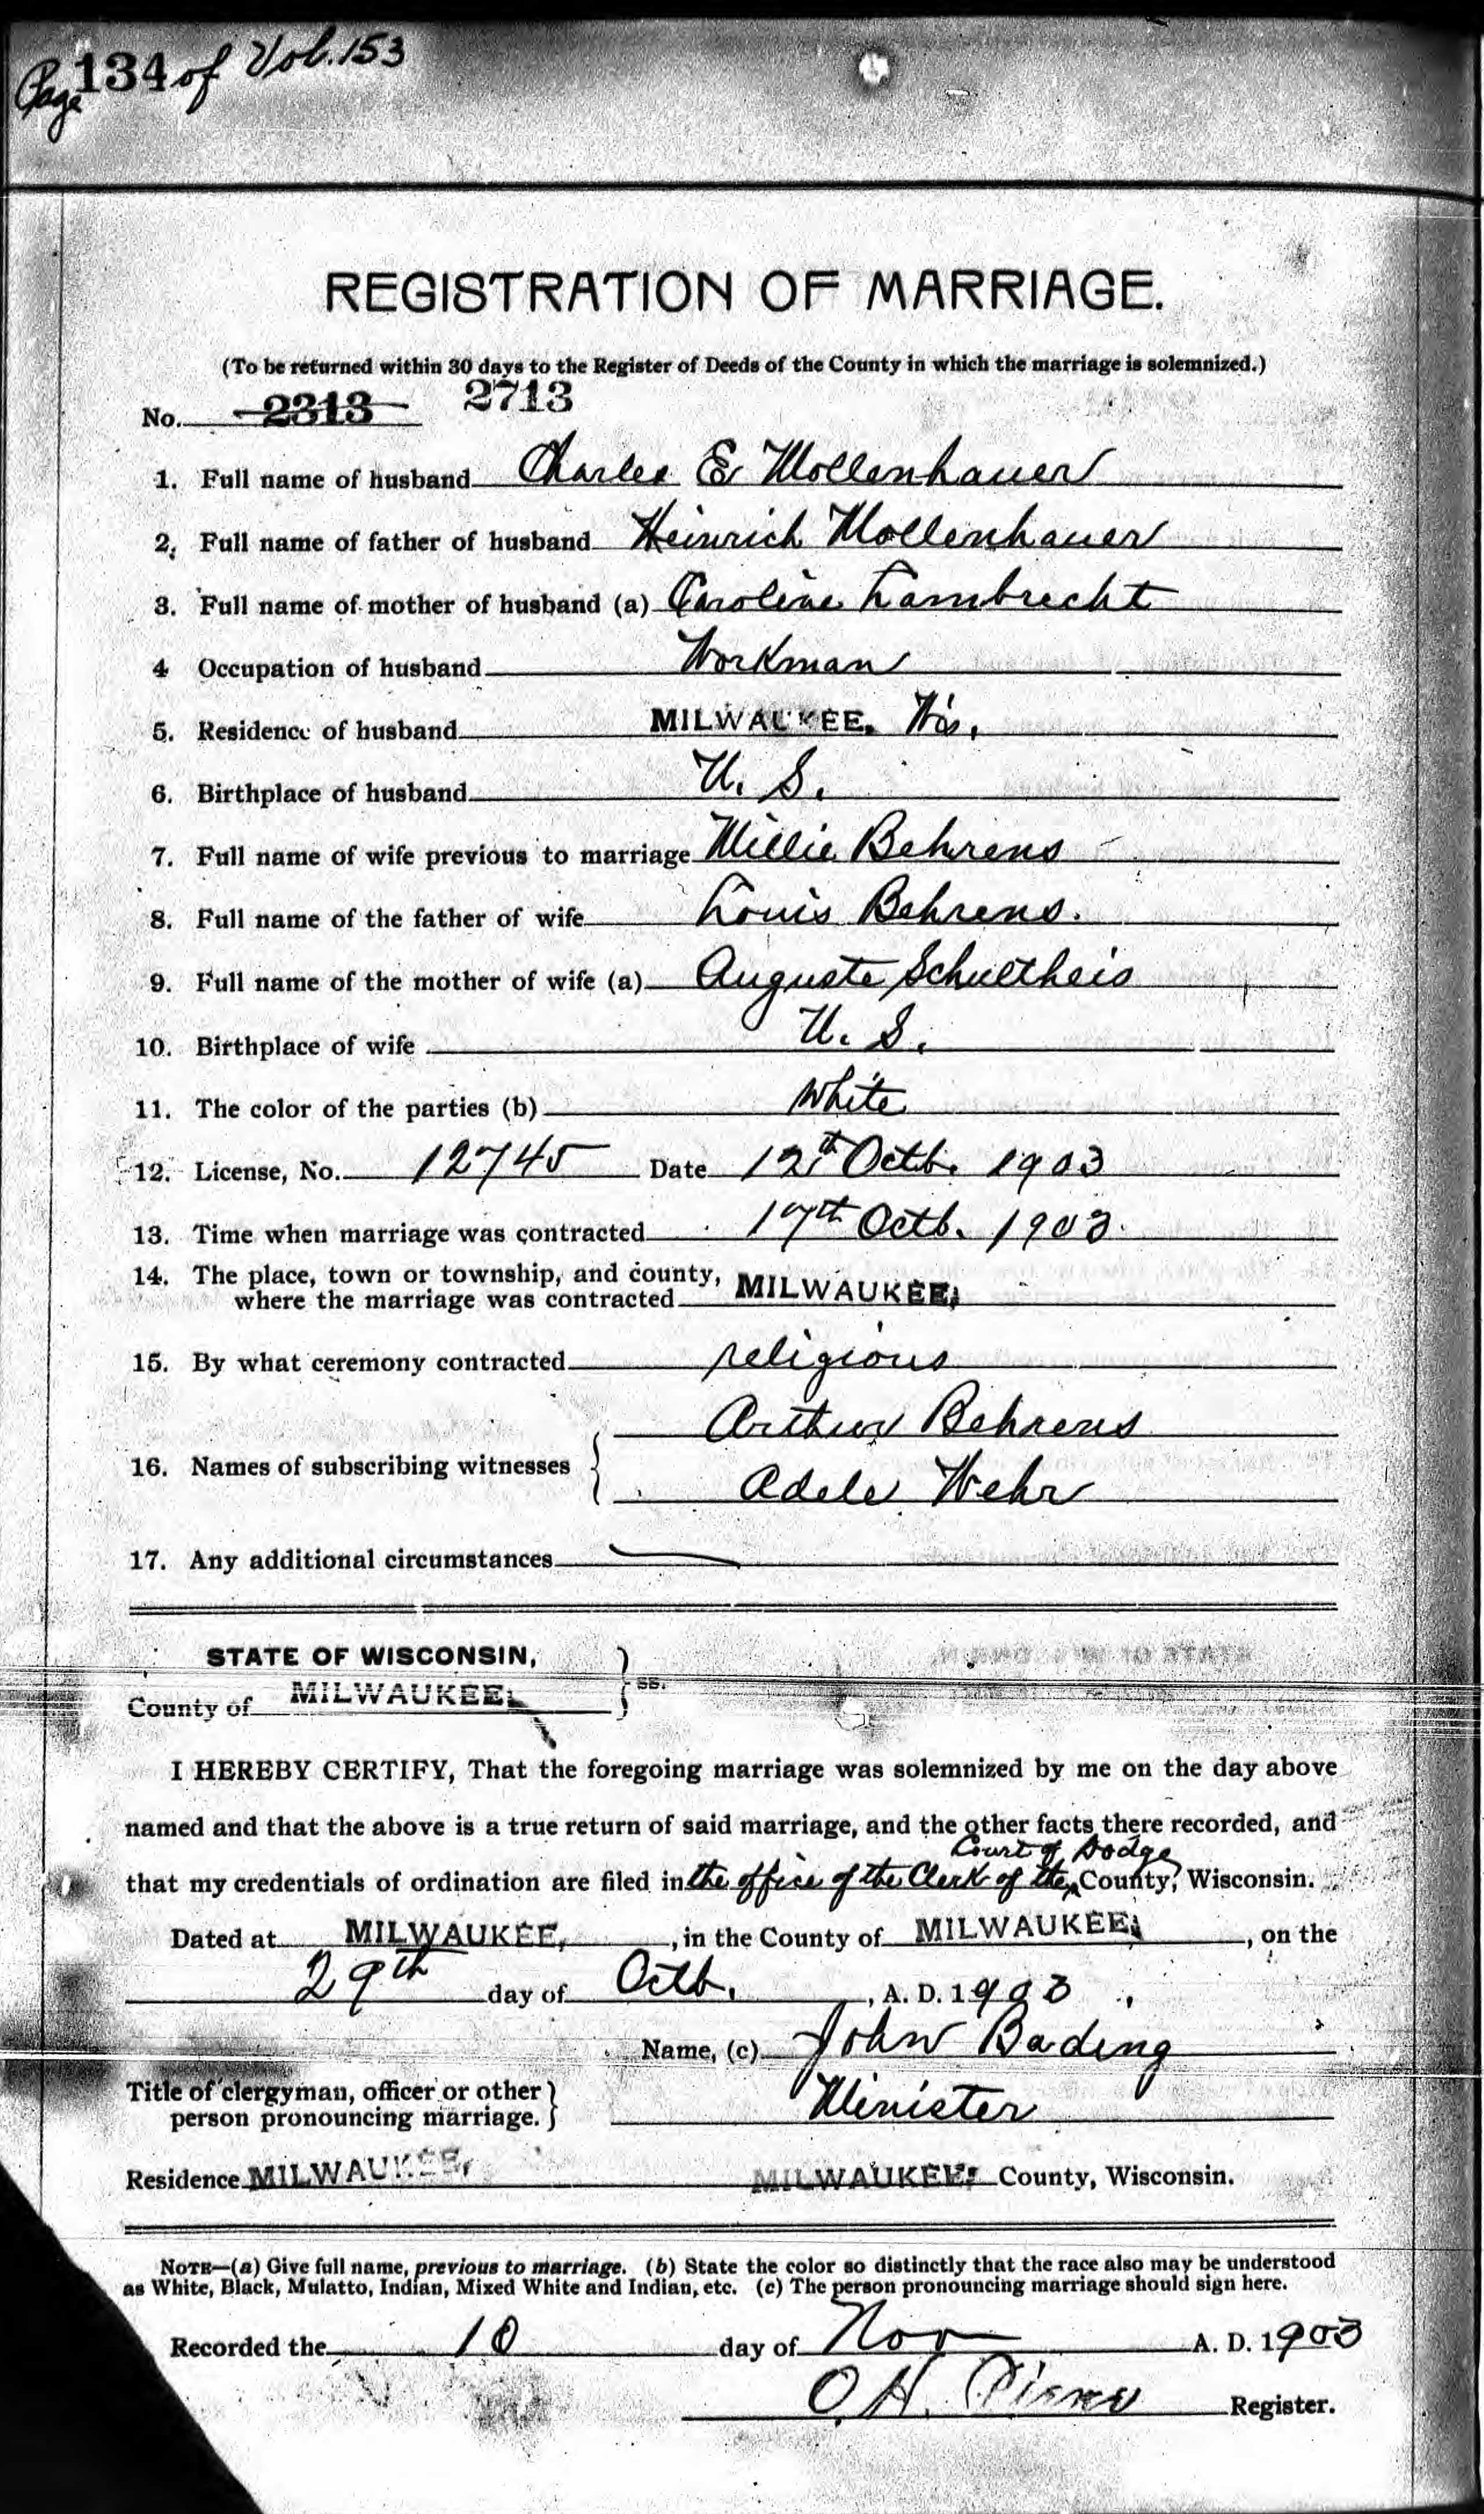 Page 134 of Vol. 153
REGISTRATION OF MARRIAGE.
(To be returned within 30 days to the Register of Deeds of the County in which the marriage is solemnized.)
No. 2313 2713
1. Full name of husband Charles E Mollenhauer
2. Full name of father of husband Heinrich Mollenhauer
3. Full name of mother of husband (a) Caroline Lambrecht
4 Occupation of husband Workman
5. Residence of husband MILWAUKEE, Wis,
6. Birthplace of husband U. S.
7. Full name of wife previous to marriage Millie Behrens
8. Full name of the father of wife Louis Behrens.
9. Full name of the mother of wife (a) Auguste Schultheis
10. Birthplace of wife U. S.
11. The color of the parties (b) white
12. License, No. 12745 Date 12th Octb. 1903
13. Time when marriage was contracted 17th Octb. 1903
14. The place, town or township, and county,
where the marriage was contracted MILWAUKEE,
15. By what ceremony contracted religious
Arthur Behrens
16. Names of subscribing witnesses
Adele Wehr
17. Any additional circumstances
STATE OF WISCONSIN,
County of MILWAUKEE, ss.
I HEREBY CERTIFY, That the foregoing marriage was solemnized by me on the day above
named and that the above is a true return of said marriage, and the other facts there recorded, and
Court of Dodge
that my credentials of ordination are filed in the office of the Clerk of the County, Wisconsin.
Dated at MILWAUKEE, in the County of MILWAUKEE, on the
29th day of Octb., A. D. 1903.
Name, (c) John Bading
Title of clergyman, officer or other
person pronouncing marriage. Minister
Residence MILWAUKEE, MILWAUKEE, County, Wisconsin.
NOTE—(a) Give full name, previous to marriage. (b) State the color so distinctly that the race also may be understood
as White, Black, Mulatto, Indian, Mixed White and Indian, etc. (c) The person pronouncing marriage should sign here.
Recorded the 10 day of Nov A. D. 1903
O. H. Register.